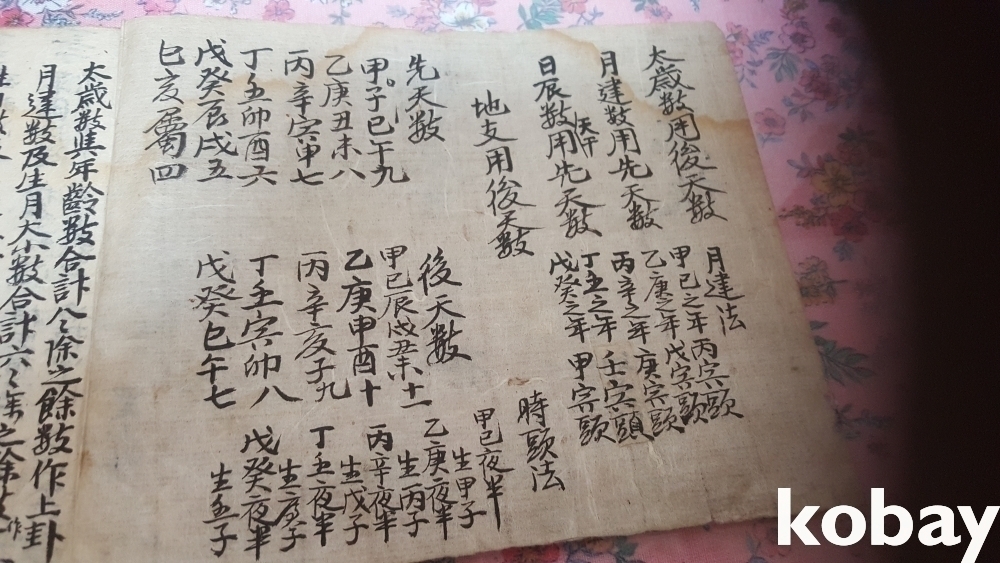 太歲數用後天數
月建數用先天數
日辰數天干用先天數
地支用後天數
月建法
甲己之年丙寅頭
乙庚之年戊寅頭
丙辛之年庚寅頭
丁壬之年壬寅頭
戊癸之年甲寅頭
先天數
甲己子午九
乙庚丑未八
丙辛寅申七
丁壬卯酉六
戊癸辰戌五
巳亥屬四
後天數
甲己辰戌丑未十一
乙庚申酉十
丙辛亥子九
丁壬寅卯八
戊癸巳午七
時頭法
甲己夜半
生甲子
乙庚夜半
生丙子
丙辛夜半
生戊子
丁壬夜半
生庚子
戊癸夜半
生壬子
太歲數與年齡數合計八八除之餘數作上卦
月建數及生月大小數合計六六除之餘
kobay